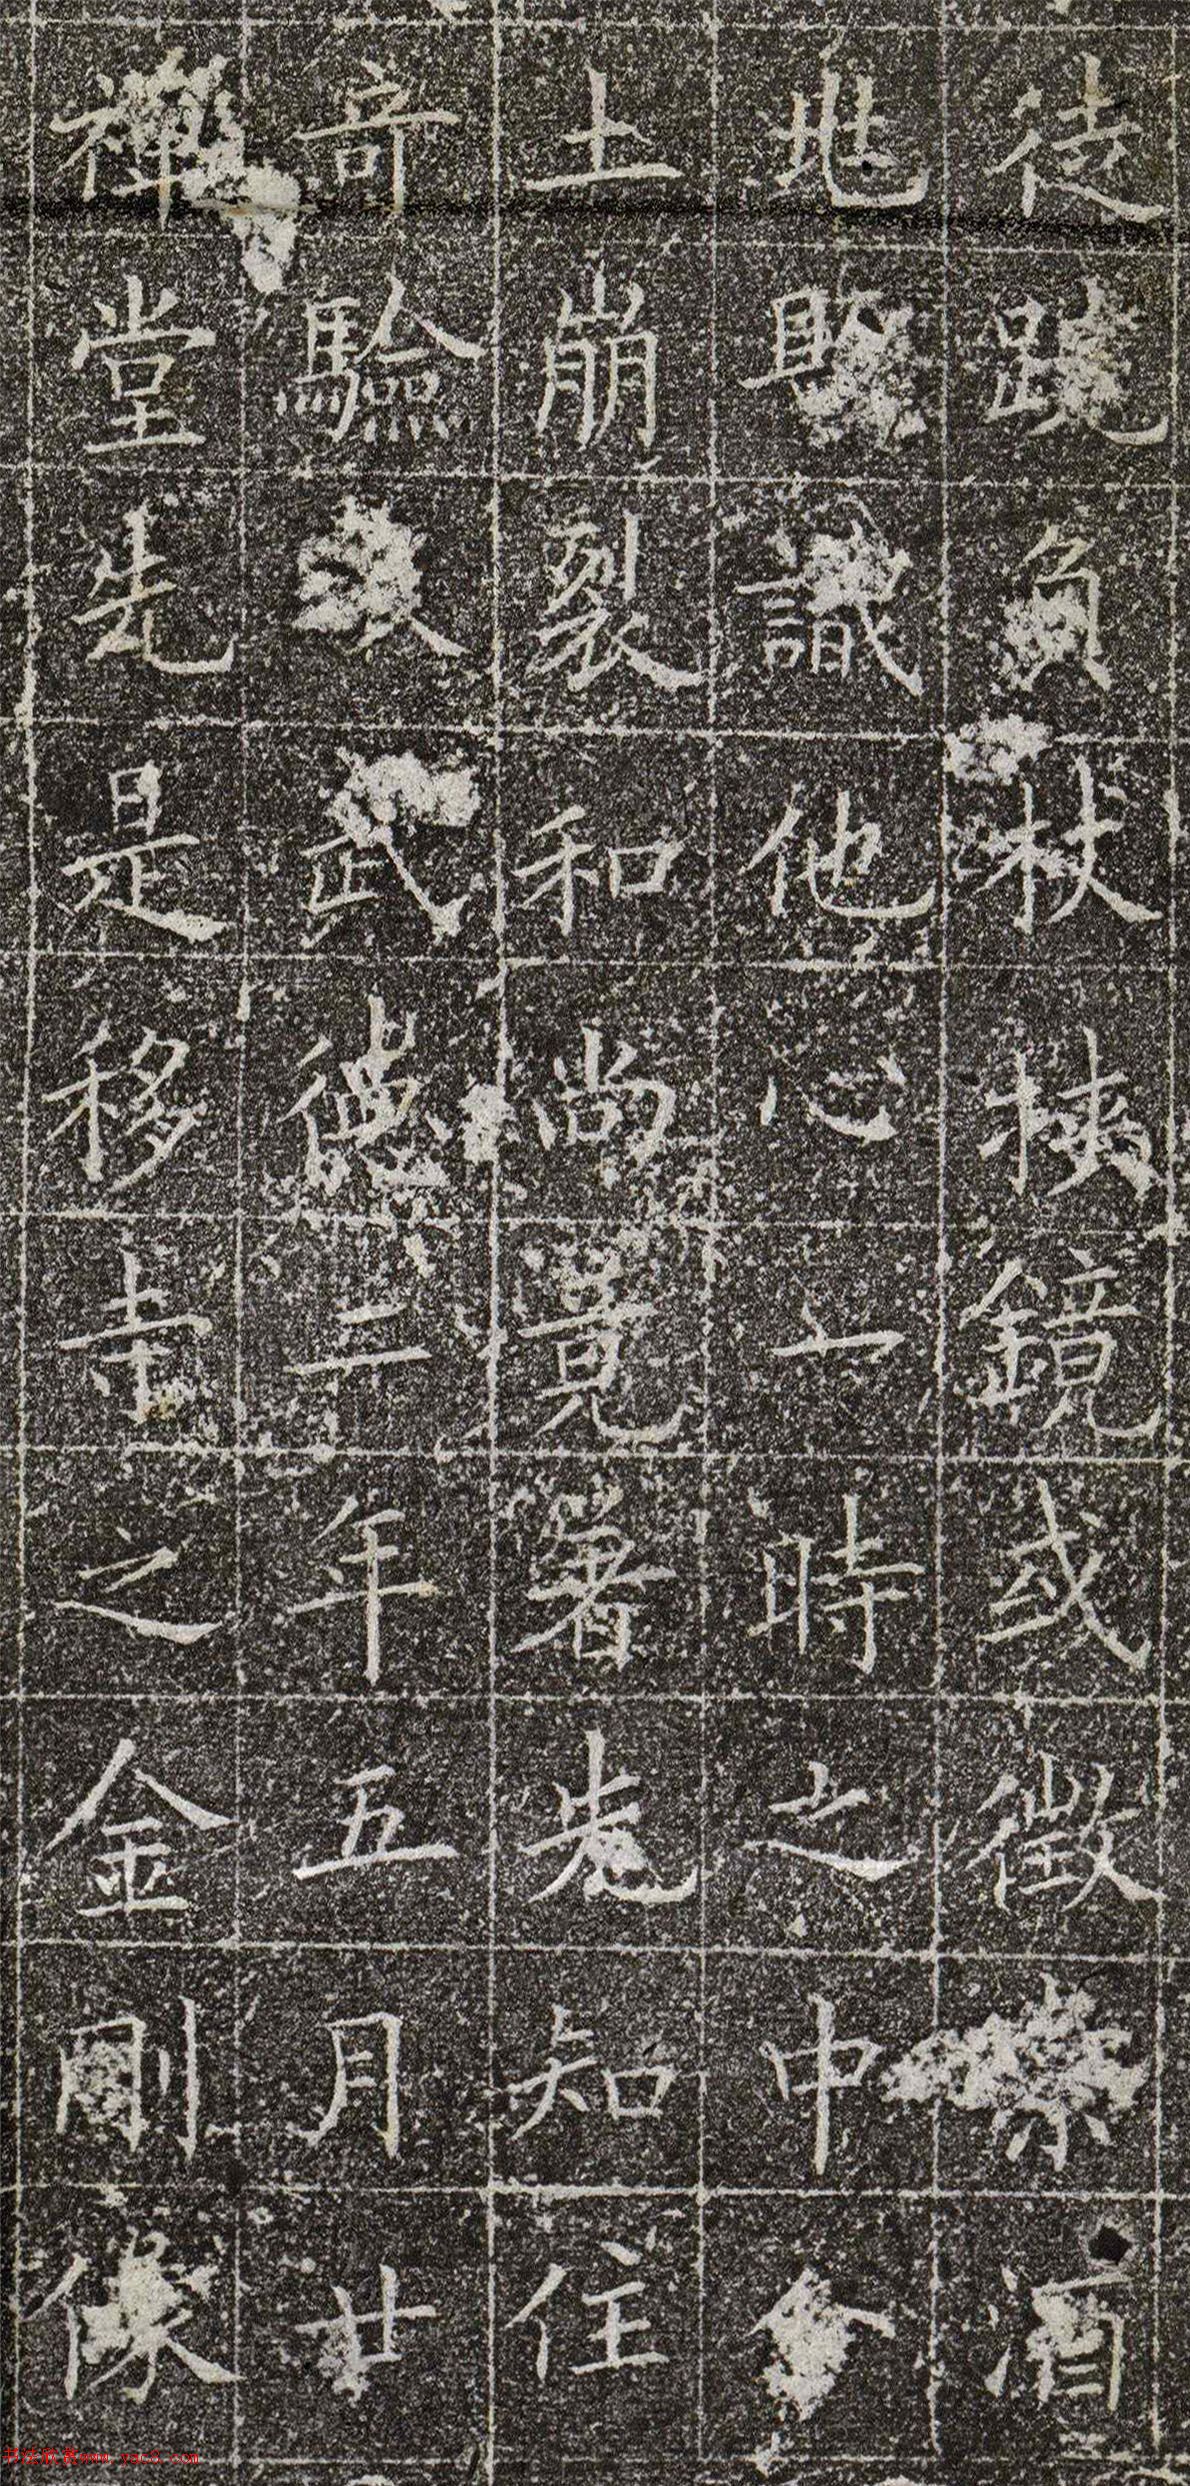 徒跣負杖挾鏡或徵索酒
地識他心一時之中
土崩裂和尚竟著先知住
奇驗武德二年五月廿
禪堂先是移寺之金剛像
书法欣赏www.yac8.com